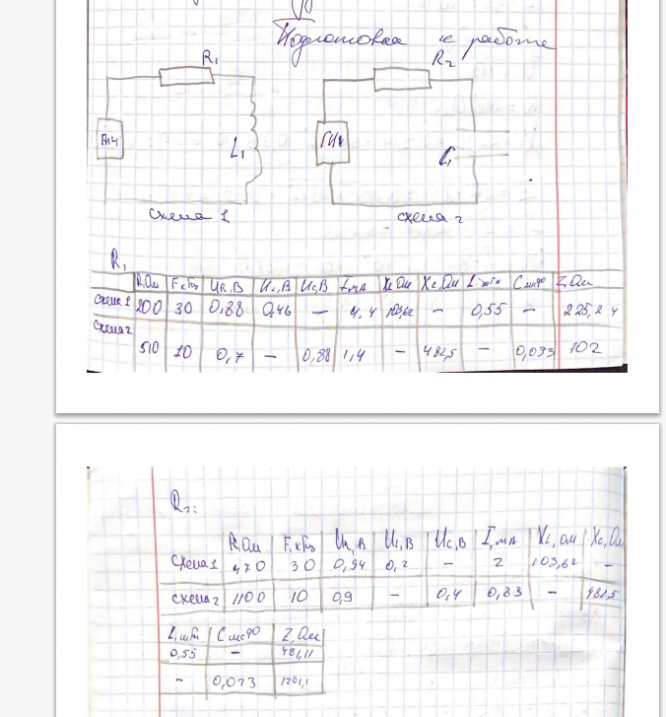 Подготовка к работе
R1 R2
ГНЧ L1 ГНЧ C1
Схема 1 схема 2
R1
R,Ом F,кГц UR,В UL,В UC,В I,мА XL,Ом XC,Ом L,мГн C,мкФ Z,Ом
Схема 1 200 30 0,88 0,46 — 4,4 103,62 — 0,55 — 225,24
Схема 2
510 10 0,7 — 0,88 1,4 — 482,5 — 0,033 702
R2:
R,Ом F,кГц UR,В UL,В UC,В I,мА XL,Ом XC,Ом
Схема 1 470 30 0,94 0,2 — 2 103,62 —
Схема 2 1100 10 0,9 — 0,4 0,83 — 482,5
L,мГн C,мкФ Z,Ом
0,55 — 481,11
— 0,033 1201,1